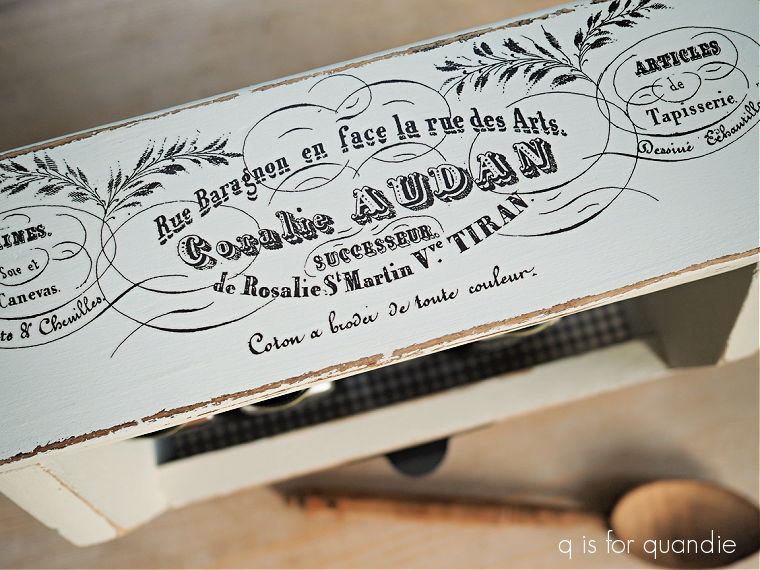 Rue Baragnon en face la rue des Arts.
Coralie AUDAN
SUCCESSEUR.
de Rosalie St Martin Vve TIRAN.
Coton a broder de toute couleur.
INES.
Soie et
Canevas.
& Chenilles.
ARTICLES
de
Tapisserie.
Dessiné Echantillo
q is for quandie